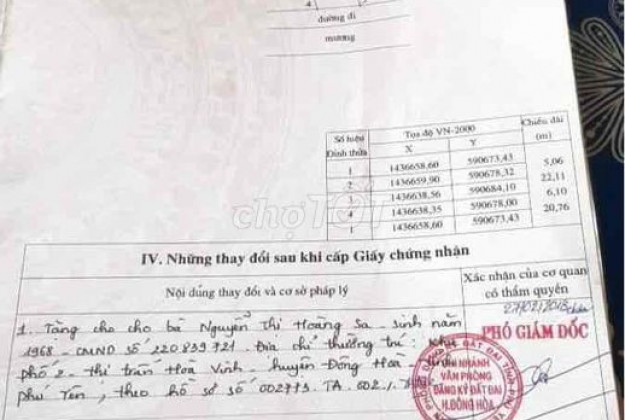 4
đường đi
mương
Số hiệu Đỉnh thửa
Tọa độ VN-2000
Chiều dài (m)
X Y
1 1436658,60 590673,43
5,06
2 1436659,90 590678,32
22,11
3 1436638,56 590684,10
6,10
4 1436638,35 590678,00
20,76
1 1436658,60 590673,43
chợTỐT
IV. Những thay đổi sau khi cấp Giấy chứng nhận
Nội dung thay đổi và cơ sở pháp lý
Xác nhận của cơ quan có thẩm quyền
27/02/2018
1. Tặng cho cho bà Nguyễn Thị Hoàng Sa - sinh năm
1968 - CMND số 220839721. Địa chỉ thường trú: Khu
phố 2 - Thị trấn Hoà Vinh - huyện Đông Hoà - tỉnh
Phú Yên; theo hồ sơ số 002773.TA.002.
PHÓ GIÁM ĐỐC
CHI NHÁNH
VĂN PHÒNG
ĐĂNG KÝ ĐẤT ĐAI
H.ĐÔNG HÒA